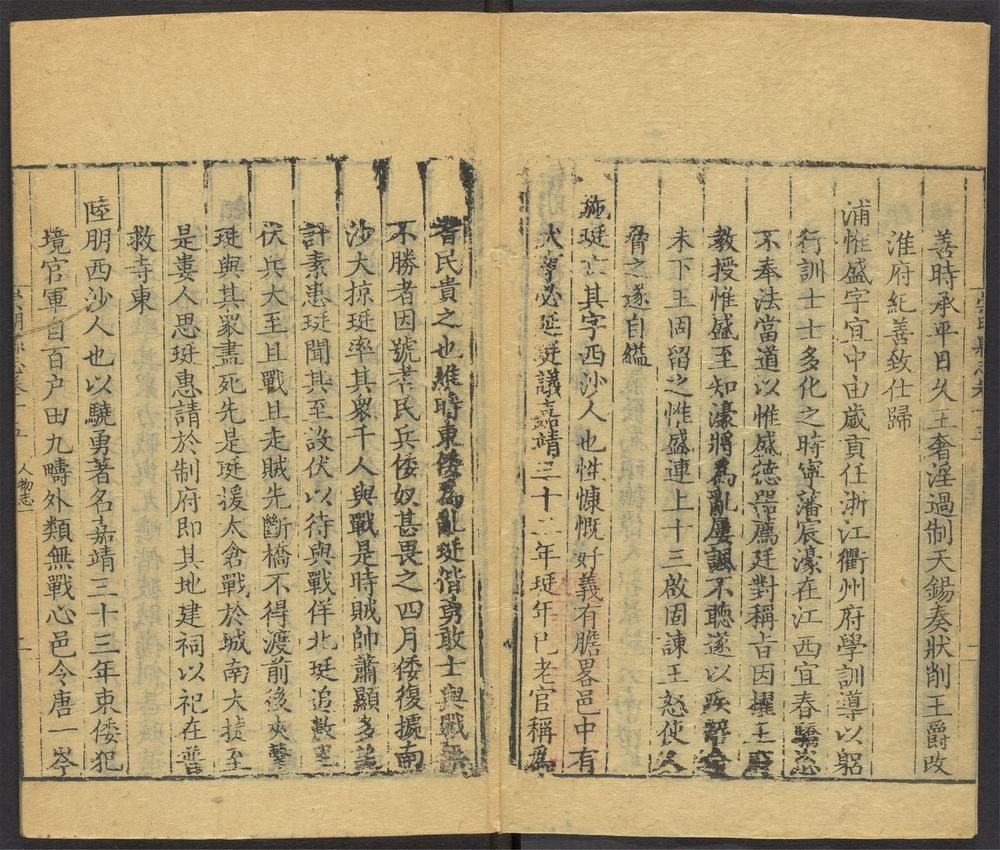 善時承平日久王奢淫過制天錫奏狀削王爵改
淮府紀善致仕歸
浦惟盛字宜中由歲貢任浙江衢州府學訓導以躬
行訓士士多化之時寧藩宸濠在江西宜春驕恣
不奉法當道以惟盛德器薦廷對稱旨因擢王府
教授惟盛至知濠將為亂屢諷不聽遂以疾辭
未下王固留之惟盛連上十三啟固諫王怒使人
脅之遂自縊
施珽字西沙人也性慷慨好義有膽畧邑中有
大事必延珽議嘉靖三十二年珽年已老官稱為
耆民貴之也維時東倭為亂珽偕勇敢士與戰無
不勝者因號耆民兵倭奴甚畏之四月倭復擄南
沙大掠珽率其衆千人與戰是時賊帥蕭顯多
計素患珽聞其至設伏以待與戰佯北珽追數里
伏兵大至且戰且走賊先斷橋不得渡前後夾擊
珽與其眾盡死先是珽援太倉戰於城南大捷至
是婁人思珽惠請於制府即其地建祠以祀在普
救寺東
陸朋西沙人也以驍勇著名嘉靖三十三年東倭犯
境官軍自百户田九疇外類無戰心邑令唐一岑
人物志